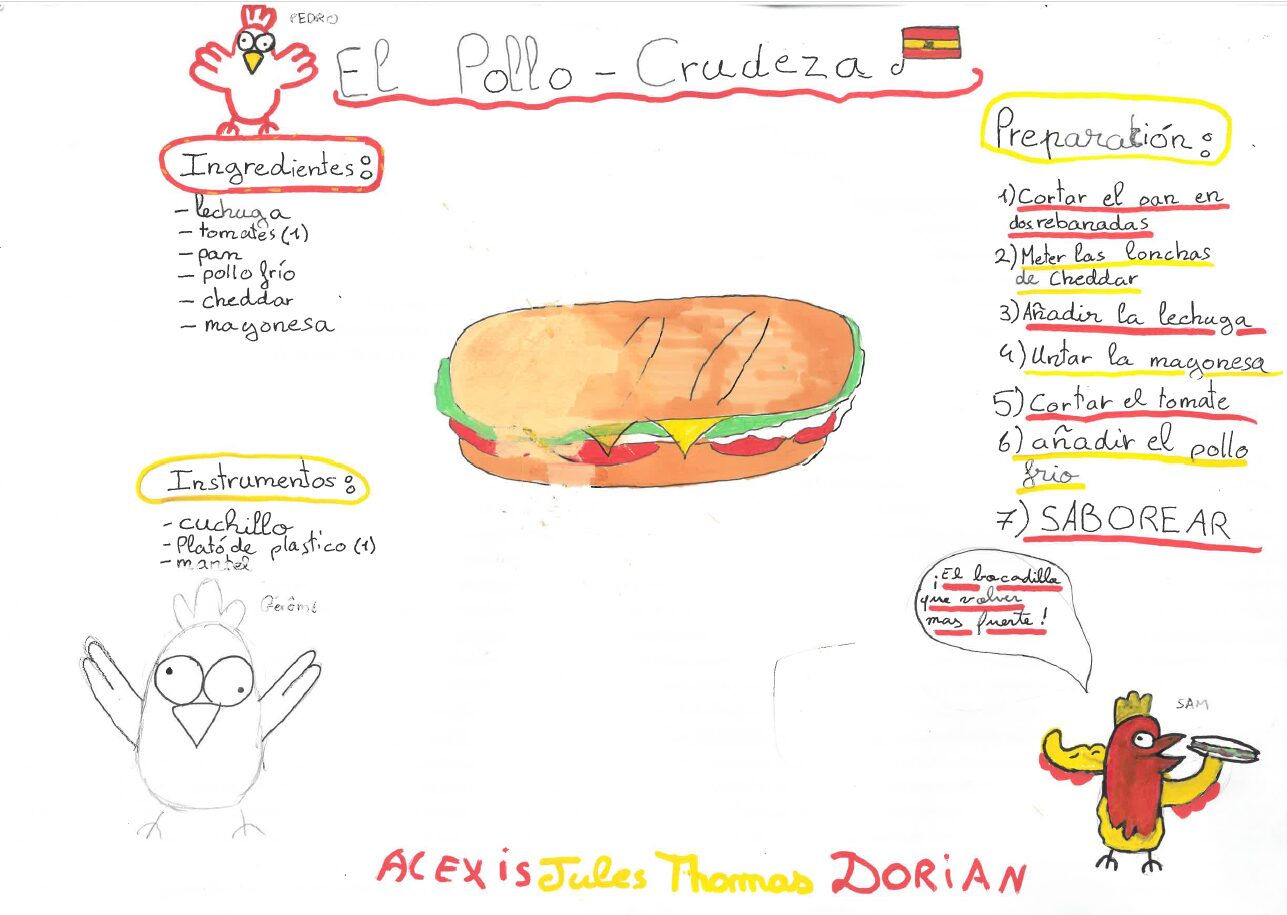 PEDRO
El Pollo - Crudeza
Ingredientes:
- lechuga
- tomates (1)
- pan
- pollo frío
- cheddar
- mayonesa
Instrumentos:
- cuchillo
- Plató de plastico (1)
- mantel
Gérôme
Preparación:
1) Cortar el pan en
dos rebanadas
2) Meter las lonchas
de Cheddar
3) Añadir la lechuga
4) Untar la mayonesa
5) Cortar el tomate
6) añadir el pollo
frio
7) SABOREAR
¡El bocadillo
que volver
mas fuerte!
SAM
ALEXIS Jules Thomas DORIAN